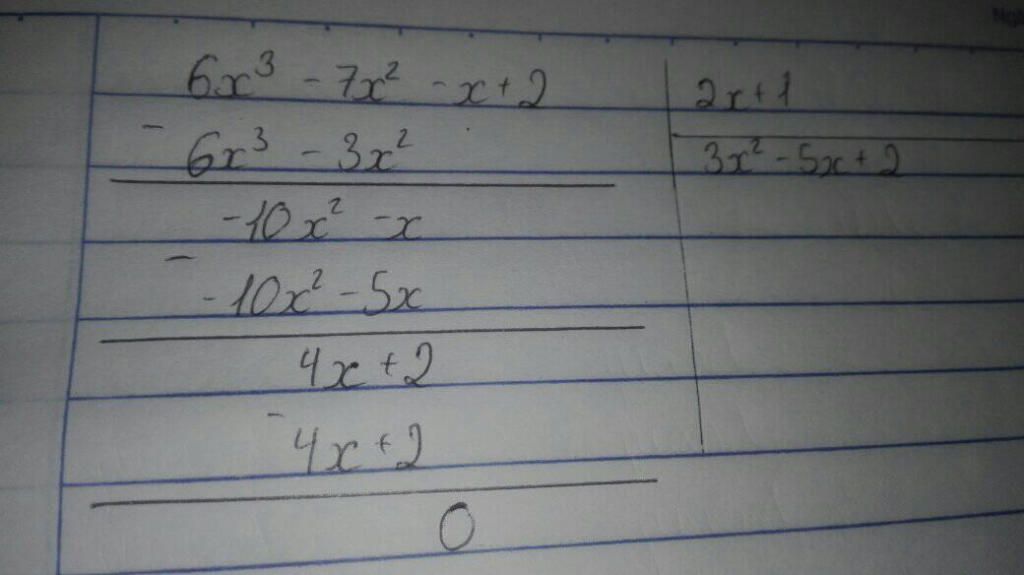 6x³ - 7x² - x + 2 | 2x + 1
- 6x³ - 3x² | 3x² - 5x + 2
-10x² - x
- -10x² - 5x
4x + 2
- 4x + 2
0